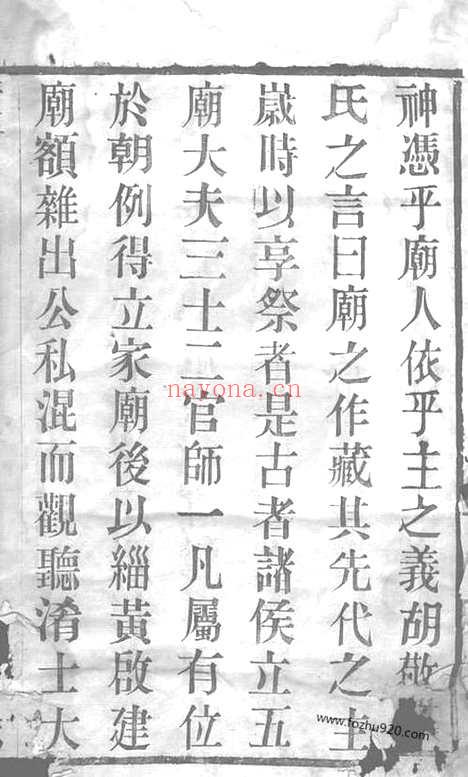 神憑乎廟人依乎主之義胡敬
氏之言曰廟之作藏其先代之主
歲時以享祭者是古者諸侯立五
廟大夫三士二官師一凡屬有位
於朝例得立家廟後以緇黃啟建
廟額雜出公私混而觀聽淆士大
nayona.cn
www.fozhu920.com